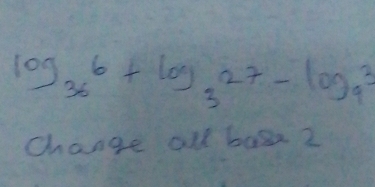 log₃₆6 + log₃27 - log₉3
change all base 2